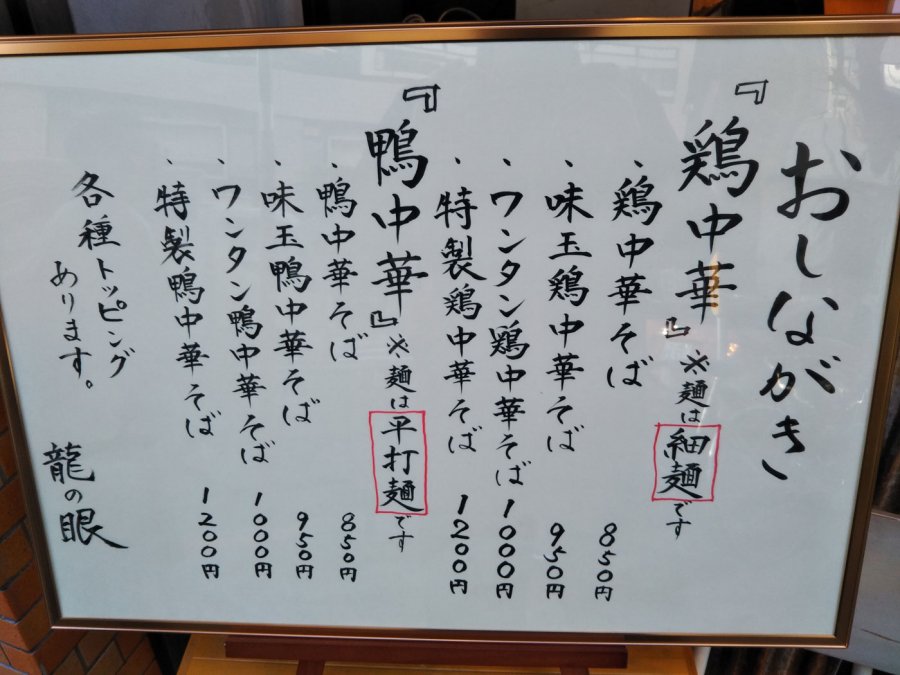 おしながき
『鶏中華』※麺は細麺です
・鶏中華そば 850円
・味玉鶏中華そば 950円
・ワンタン鶏中華そば 1000円
・特製鶏中華そば 1200円
『鴨中華』※麺は平打麺です
・鴨中華そば 850円
・味玉鴨中華そば 950円
・ワンタン鴨中華そば 1000円
・特製鴨中華そば 1200円
各種トッピング
あります。
龍の眼